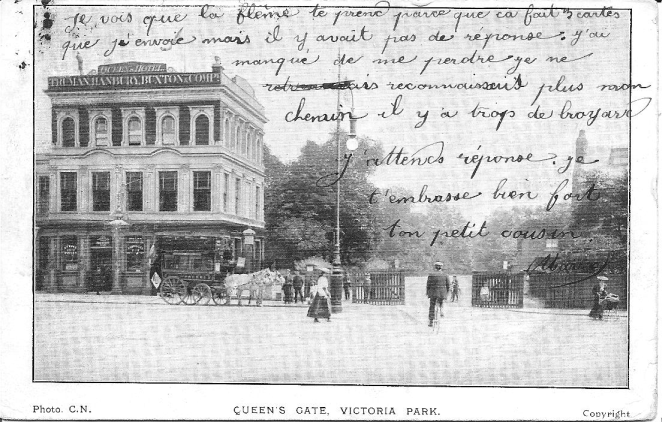 Je vois que la flême te prend parce que ca fait 3 cartes
que j'envoie mais il y avait pas de réponse. j'ai
manqué de me perdre je ne
reconnaissais plus mon
chemin il y a trops de broyard
j'attends réponse. je
t'embrasse bien fort
ton petit cousin
QUEEN'S HOTEL
TRUMAN, HANBURY, BUXTON & COMPY
Photo. C.N.
QUEEN'S GATE, VICTORIA PARK.
Copyright